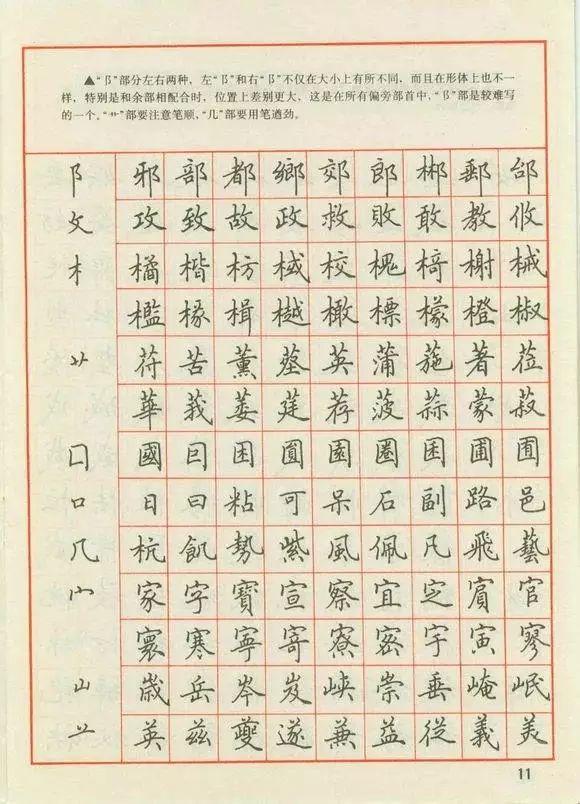 ▲“阝”部分左右两种，左“阝”和右“阝”不仅在大小上有所不同，而且在形体上也不一
样，特别是和余部相配合时，位置上差别更大，这是在所有偏旁部首中，“阝”部是较难写
的一个。“艹”部要注意笔顺，“几”部要用笔遒劲。
阝 邪 部 都 鄉 郊 郎 郴 郵 邰
攵 攻 致 故 政 救 敗 敢 教 攸
木 橘 楷 枋 棫 校 槐 椅 榭 械
檻 椽 楫 樾 橄 標 檬 橙 椒
艹 苻 苦 薰 英 蒲 葹 著 菈
華 莪 蒌 莛 荐 菠 蒜 蒙 菽
囗 國 回 困 園 圈 囷 圃
口 日 曰 粘 可 呆 石 副 路 邑
几 杭 飢 勢 紫 風 佩 凡 飛 藝
宀 家 字 寶 宣 察 宜 定 賓 官
寰 寒 寧 寄 寮 密 宇 寅 寥
山 歲 岳 岑 岌 峽 崇 垂 崦 岷
䒑 英 茲 夔 遂 兼 益 從 義 美
11